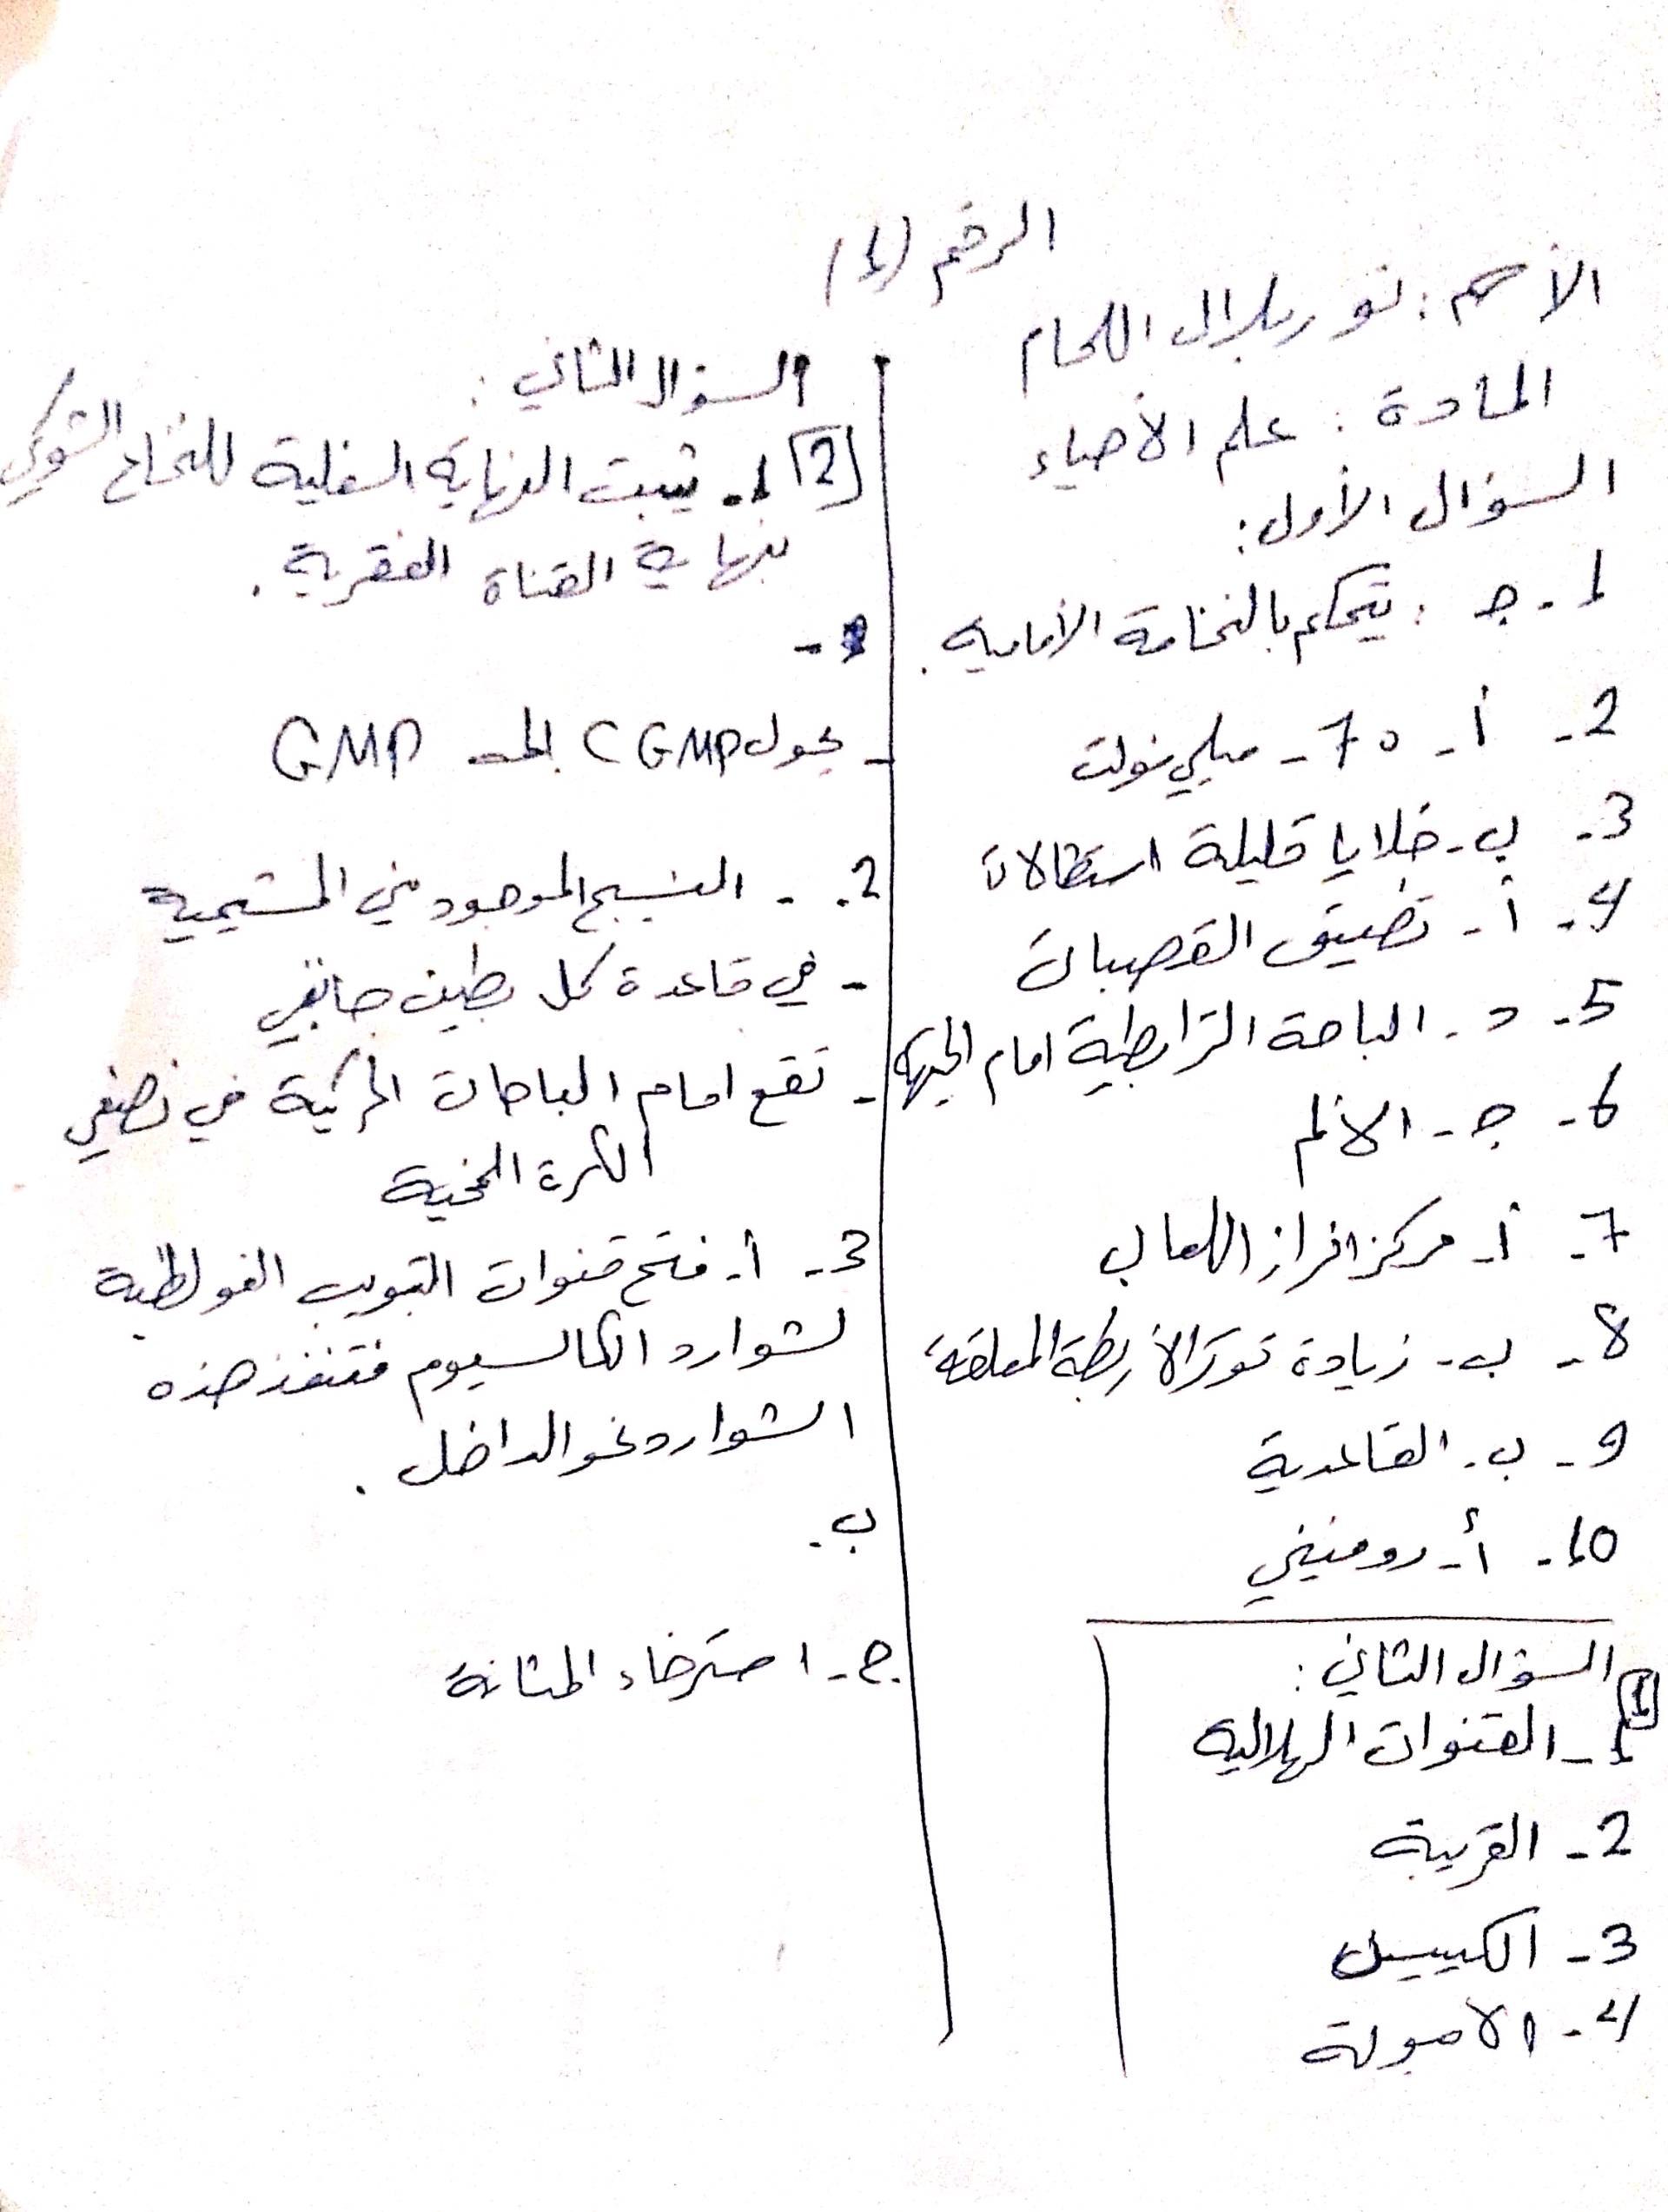 الرقم (1)
الأسم : نور بلال اللحام
المادة : علم الأحياء
السؤال الأول :
1- ج : يتحكم بالنخامة الأمامية .
2- أ- 70- ميلي فولت
3- ب- خلايا قليلة استطالات
4- أ- تضييق القصبات
5- د- الباحة الترابطية امام الجبهية
6- ج- الالم
7- أ- مركز افراز اللعاب
8- ب- زيادة توتر الأربطة المعلقة
9- ب- القاعدية
10- أ- روفيني
السؤال الثاني :
1
1- القنوات الهلالية
2- القريبة
3- الكييس
4- الامبولة
السؤال الثاني :
2 1- تثبت النهاية السفلية للنخاع الشوكي
بنهاية القناة الفقرية .
- يحول CGMP الى GMP
2- - النسيج الموجود في المشيمية
- في قاعدة كل بطين جانبي
- تقع امام الباحات الحركية في نصفي
الكرة المخية
3- أ- فتح قنوات التبويب الفولطية
لشوارد الكالسيوم فتنفذ هذه
الشوارد نحو الداخل .
ب-
ج- استرخاء المثانة